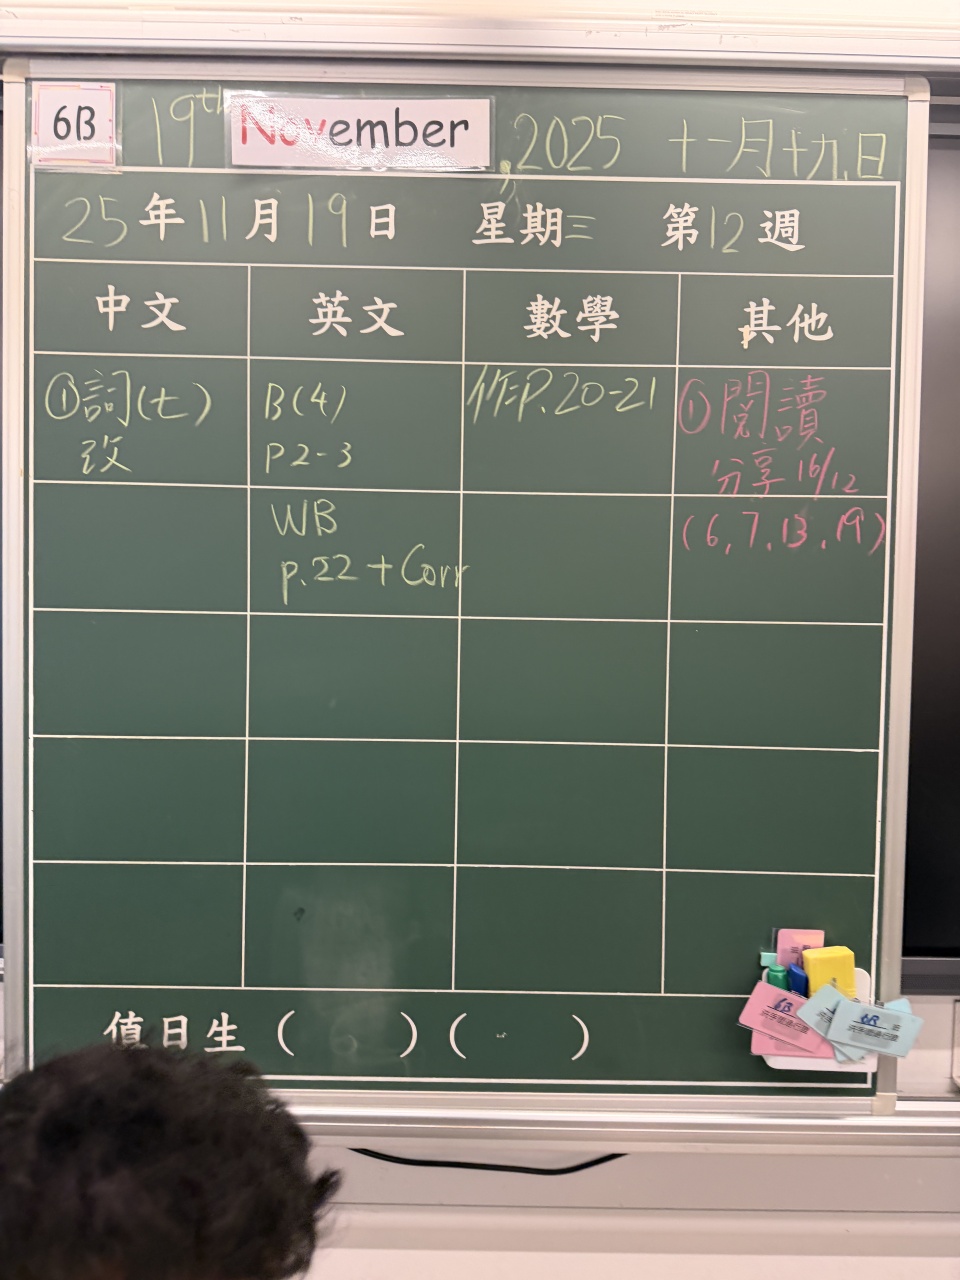 6B 19th November, 2025 十一月十九日
25年11月19日 星期三 第12週
中文 英文 數學 其他
①詞(七)
改
B(4)
P2-3
作P.20-21
①閱讀
分享 16/12
WB
p.22 + Corr
(6, 7, 13, 19)
值日生 ( ) ( )
6B
6B